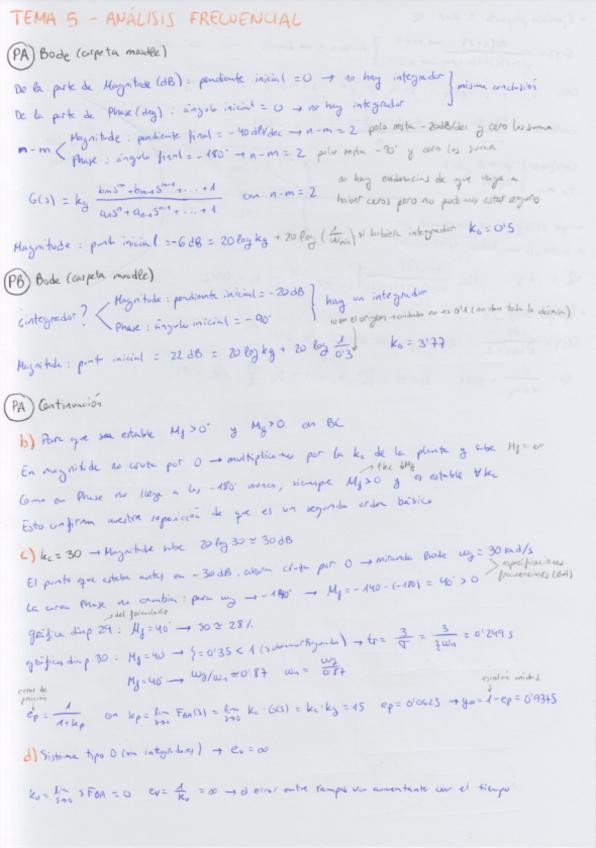 TEMA 5 - ANÁLISIS FRECUENCIAL
PA Bode (carpeta moodle)
De la parte de Magnitude (dB): pendiente inicial = 0 → no hay integrador } misma conclusión
De la parte de Phase (deg): ángulo inicial = 0 → no hay integrador
Magnitude: pendiente final = -40 dB/dec → n-m = 2 polo resta -20dB/dec y cero los suma
n-m <
Phase: ángulo final = -180° → n-m = 2 polo resta -90° y cero los suma
G(s) = kg (bm sᵐ + bm-1 sᵐ⁻¹ + ... + 1) / (an sⁿ + an-1 sⁿ⁻¹ + ... + 1) con n-m = 2
no hay evidencias de que vaya a
haber ceros pero no podemos estar seguro
Magnitude: punto inicial = -6 dB = 20 log kg + 20 log (1/ωmin) si hubiera integrador k₀ = 0'5
PB Bode (carpeta moodle)
¿integrador? < Magnitude: pendiente inicial = -20dB } hay un integrador
Phase: ángulo inicial = -90°
Magnitude: punto inicial = 22 dB = 20 log kg + 20 log 1/0'3 k₀ = 3'77
PA Continuación
b) Para que sea estable Mf > 0° y Mg > 0 en BC
En magnitude no cruza por 0 → multiplicamos por la kc de la planta y sube Mg = ∞
Como en Phase no llega a los -180° nunca, siempre Mf > 0 y es estable ∀kc
Esto confirma nuestra suposición de que es un segundo orden básico
c) kc = 30 → Magnitude sube 20 log 30 ≃ 30 dB
El punto que estaba antes en -30dB, ahora cruza por 0 → mirando Bode ωg = 30 rad/s
especificaciones
frecuenciales (BA)
La curva Phase no cambia: para ωg → -140° → Mf = -140 - (-180) = 40° > 0
del formulario
gráfica diap 29: Mf = 40° → SO ≃ 28%
gráfica diap 30: Mf = 40 → ξ = 0'35 < 1 (subamortiguado) → tr = 3/σ = 3/ξωn = 0'249 s
Mf = 40° → ωg/ωn ≃ 0'87 ωn = ωg/0'87
error de
posición
escalón unidad
ep = 1/(1+kp) con kp = lim s→0 FBA(s) = lim s→0 kc·G(s) = kc·kg = 15 ep = 0'0625 → y∞ = 1 - ep = 0'9375
d) Sistema tipo 0 (sin integradores) → ev = ∞
kv = lim s→0 s FBA = 0 ev = 1/kv = ∞ → el error entre rampas va aumentando con el tiempo